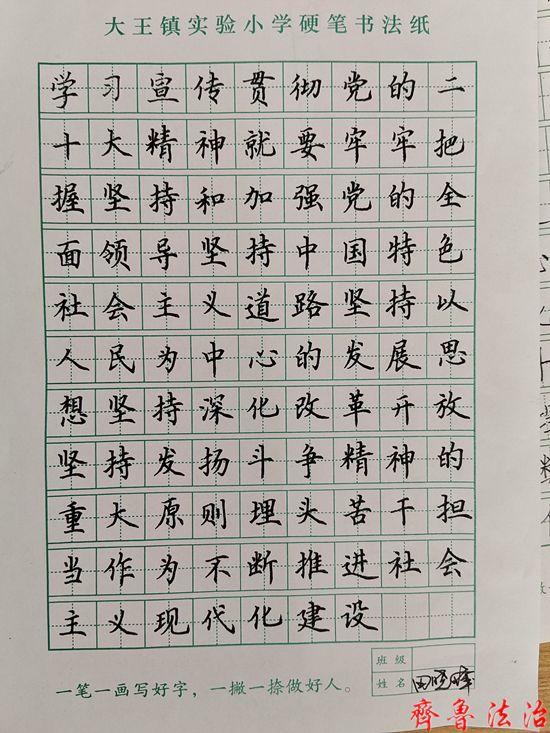 大王镇实验小学硬笔书法纸
学习宣传贯彻党的二
十大精神就要牢牢把
握坚持和加强党的全
面领导坚持中国特色
社会主义道路坚持以
人民为中心的发展思
想坚持深化改革开放
坚持发扬斗争精神的
重大原则埋头苦干担
当作为不断推进社会
主义现代化建设
班级
姓名
一笔一画写好字，一撇一捺做好人。
齐鲁法治